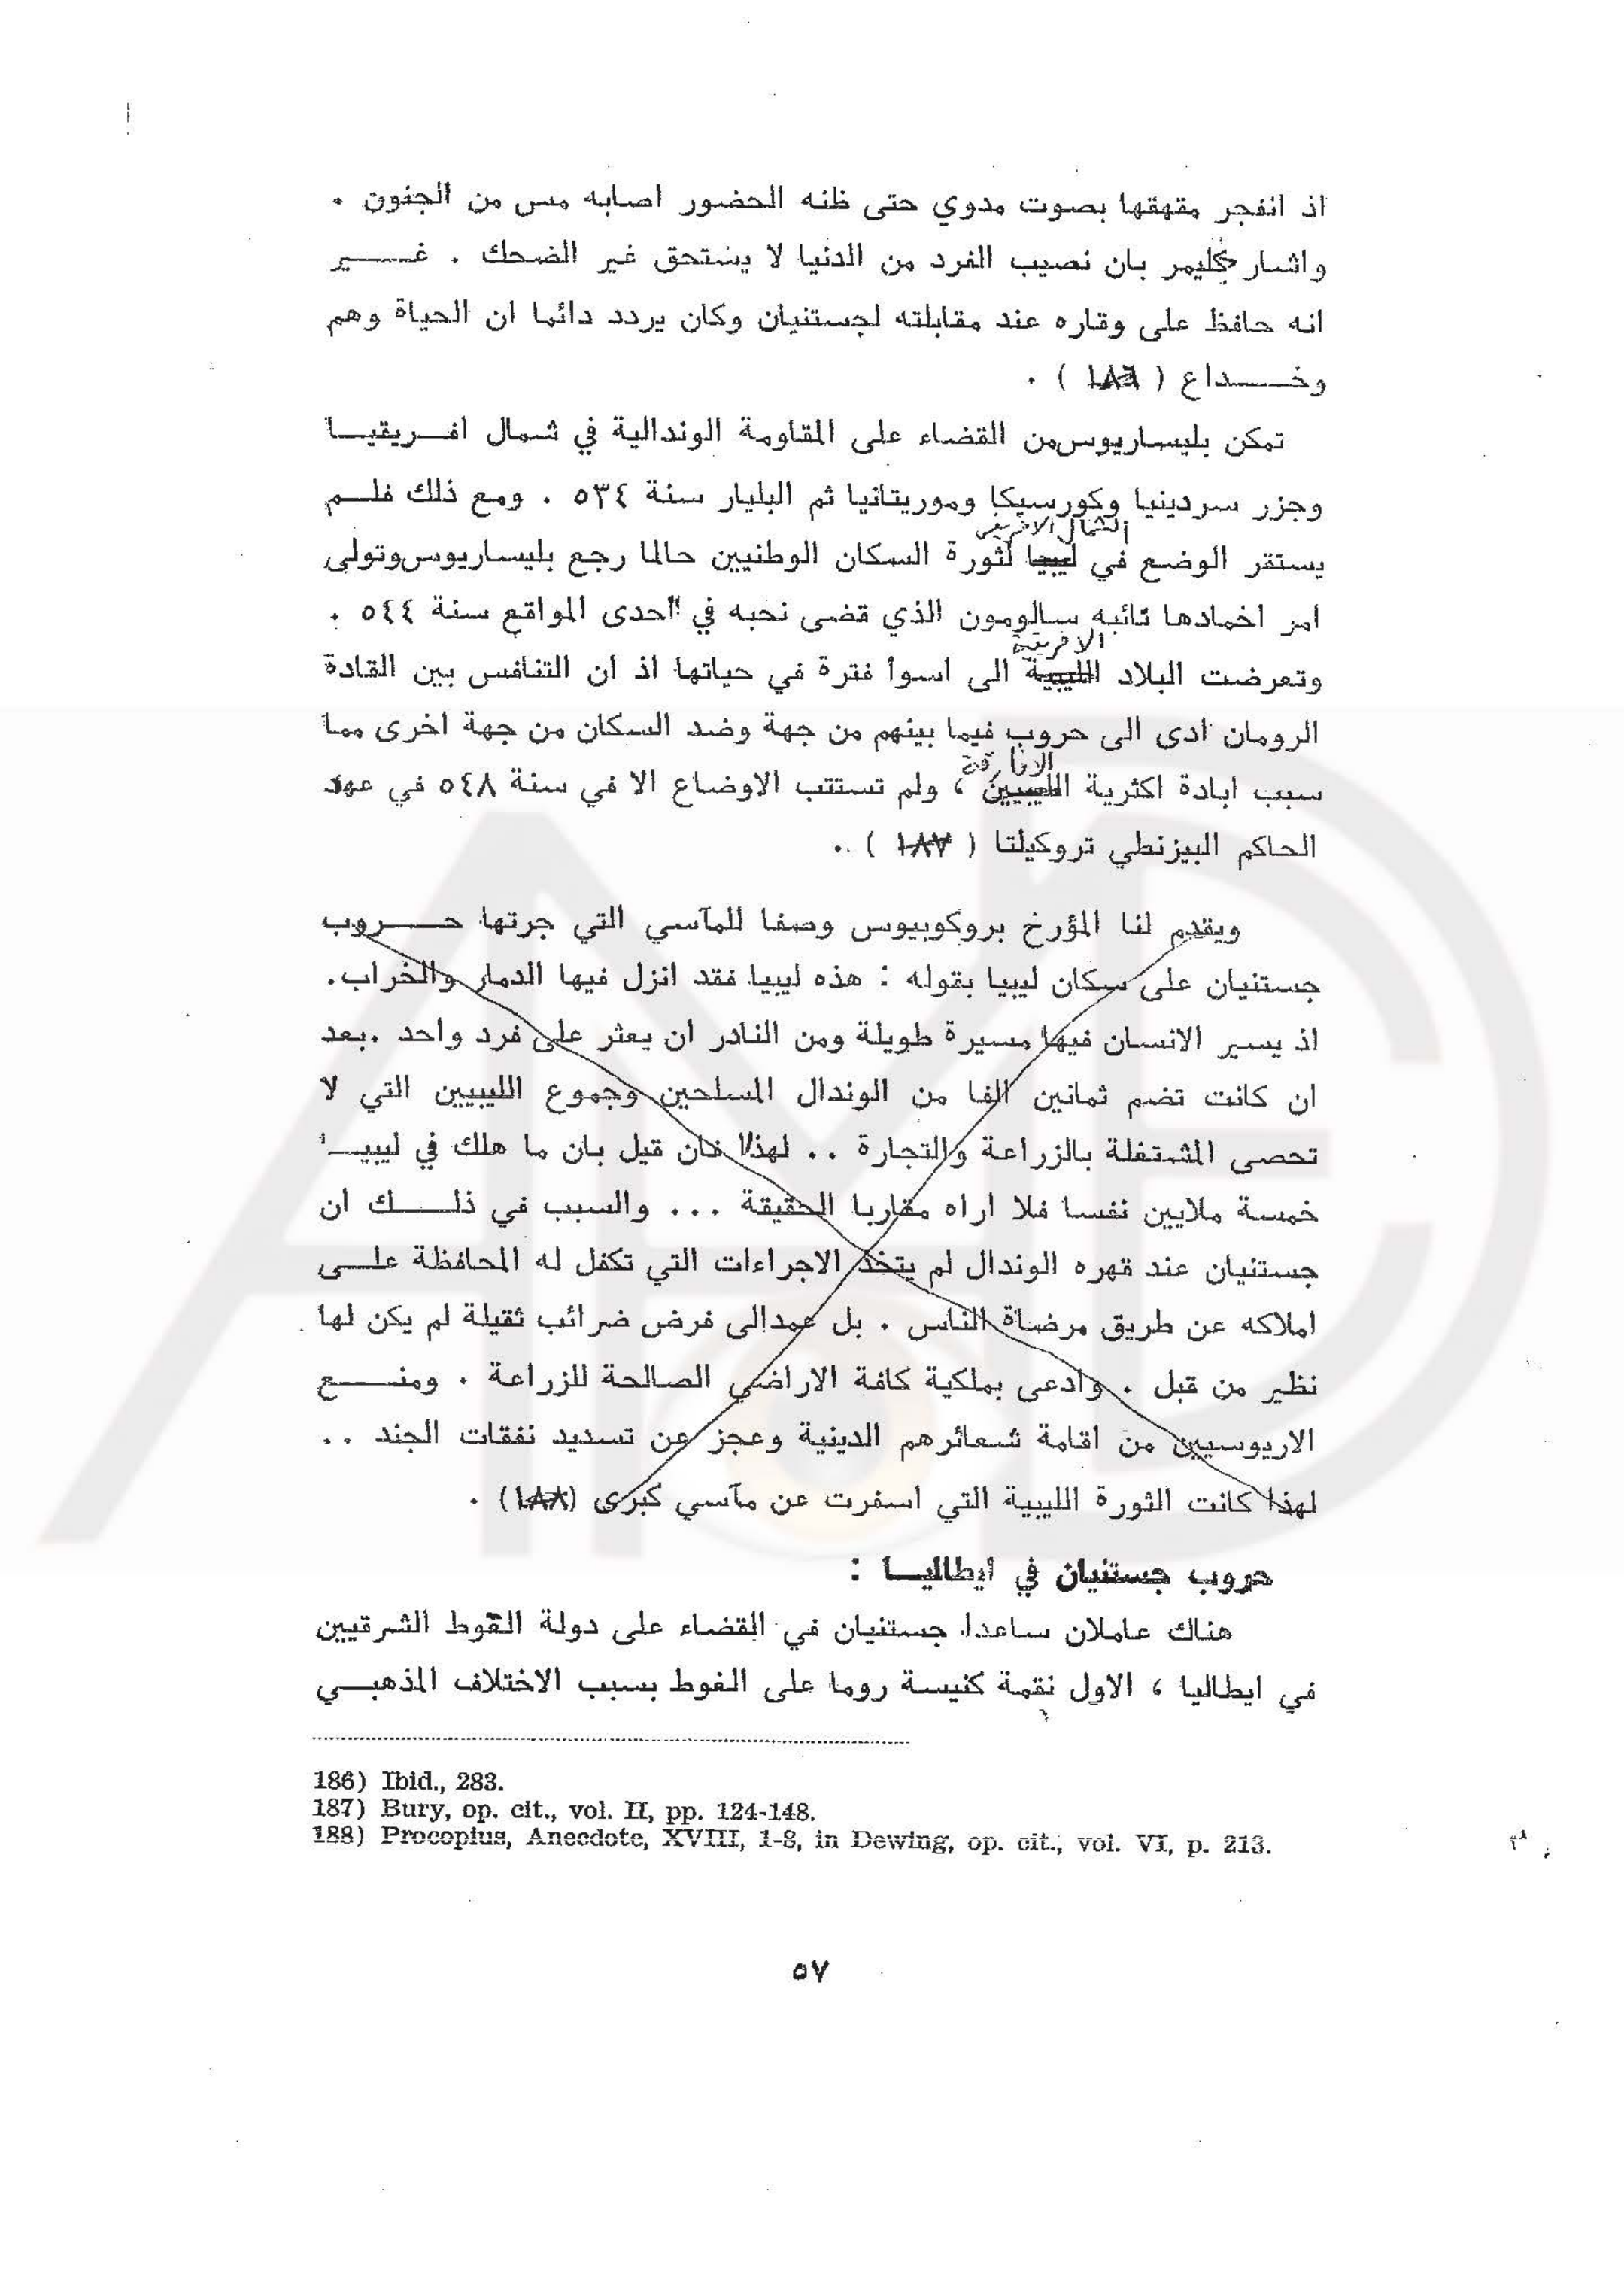 اذ انفجر مقهقها بصوت مدوي حتى ظنه الحضور اصابه مس من الجنون .
واشار كليمر بان نصيب الفرد من الدنيا لا يستحق غير الضحك . غير
انه حافظ على وقاره عند مقابلته لجستنيان وكان يردد دائما ان الحياة وهم
وخداع ( ١٨٦ ) .
تمكن بليساريوس من القضاء على المقاومة الوندالية في شمال افريقيا
وجزر سردينيا وكورسيكا وموريتانيا ثم البليار سنة ٥٣٤ . ومع ذلك فلم
الشمال الافريقي
يستقر الوضع في ليبيا لثورة السكان الوطنيين حالما رجع بليساريوس وتولى
امر اخمادها نائبه سالومون الذي قضى نحبه في احدى المواقع سنة ٥٤٤ .
الافريقية
وتعرضت البلاد الليبية الى اسوأ فترة في حياتها اذ ان التنافس بين القادة
الرومان ادى الى حروب فيما بينهم من جهة وضد السكان من جهة اخرى مما
الافارقة
سبب ابادة اكثرية الليبيين ، ولم تستتب الاوضاع الا في سنة ٥٤٨ في عهد
الحاكم البيزنطي تروكيلتا ( ١٨٧ ) .
ويقدم لنا المؤرخ بروكوبيوس وصفا للمآسي التي جرتها حروب
جستنيان على سكان ليبيا بقوله : هذه ليبيا فقد انزل فيها الدمار والخراب.
اذ يسير الانسان فيها مسيرة طويلة ومن النادر ان يعثر على فرد واحد .بعد
ان كانت تضم ثمانين الفا من الوندال المسلحين وجموع الليبيين التي لا
تحصى المشتغلة بالزراعة والتجارة .. لهذا فان قيل بان ما هلك في ليبيا
خمسة ملايين نفسا فلا اراه مقاربا الحقيقة ... والسبب في ذلك ان
جستنيان عند قهره الوندال لم يتخذ الاجراءات التي تكفل له المحافظة على
املاكه عن طريق مرضاة الناس . بل عمدالى فرض ضرائب ثقيلة لم يكن لها
نظير من قبل . وادعى بملكية كافة الاراضي الصالحة للزراعة . ومنع
الاريوسيين من اقامة شعائرهم الدينية وعجز عن تسديد نفقات الجند ..
لهذا كانت الثورة الليبية التي اسفرت عن مآسي كبرى (١٨٨) .
حروب جستنيان في ايطاليا :
هناك عاملان ساعدا جستنيان في القضاء على دولة القوط الشرقيين
في ايطاليا ، الاول نقمة كنيسة روما على القوط بسبب الاختلاف المذهبي
186) Ibid., 283.
187) Bury, op. cit., vol. II, pp. 124-148.
188) Procopius, Anecdote, XVIII, 1-8, in Dewing, op. cit., vol. VI, p. 213.
٥٧